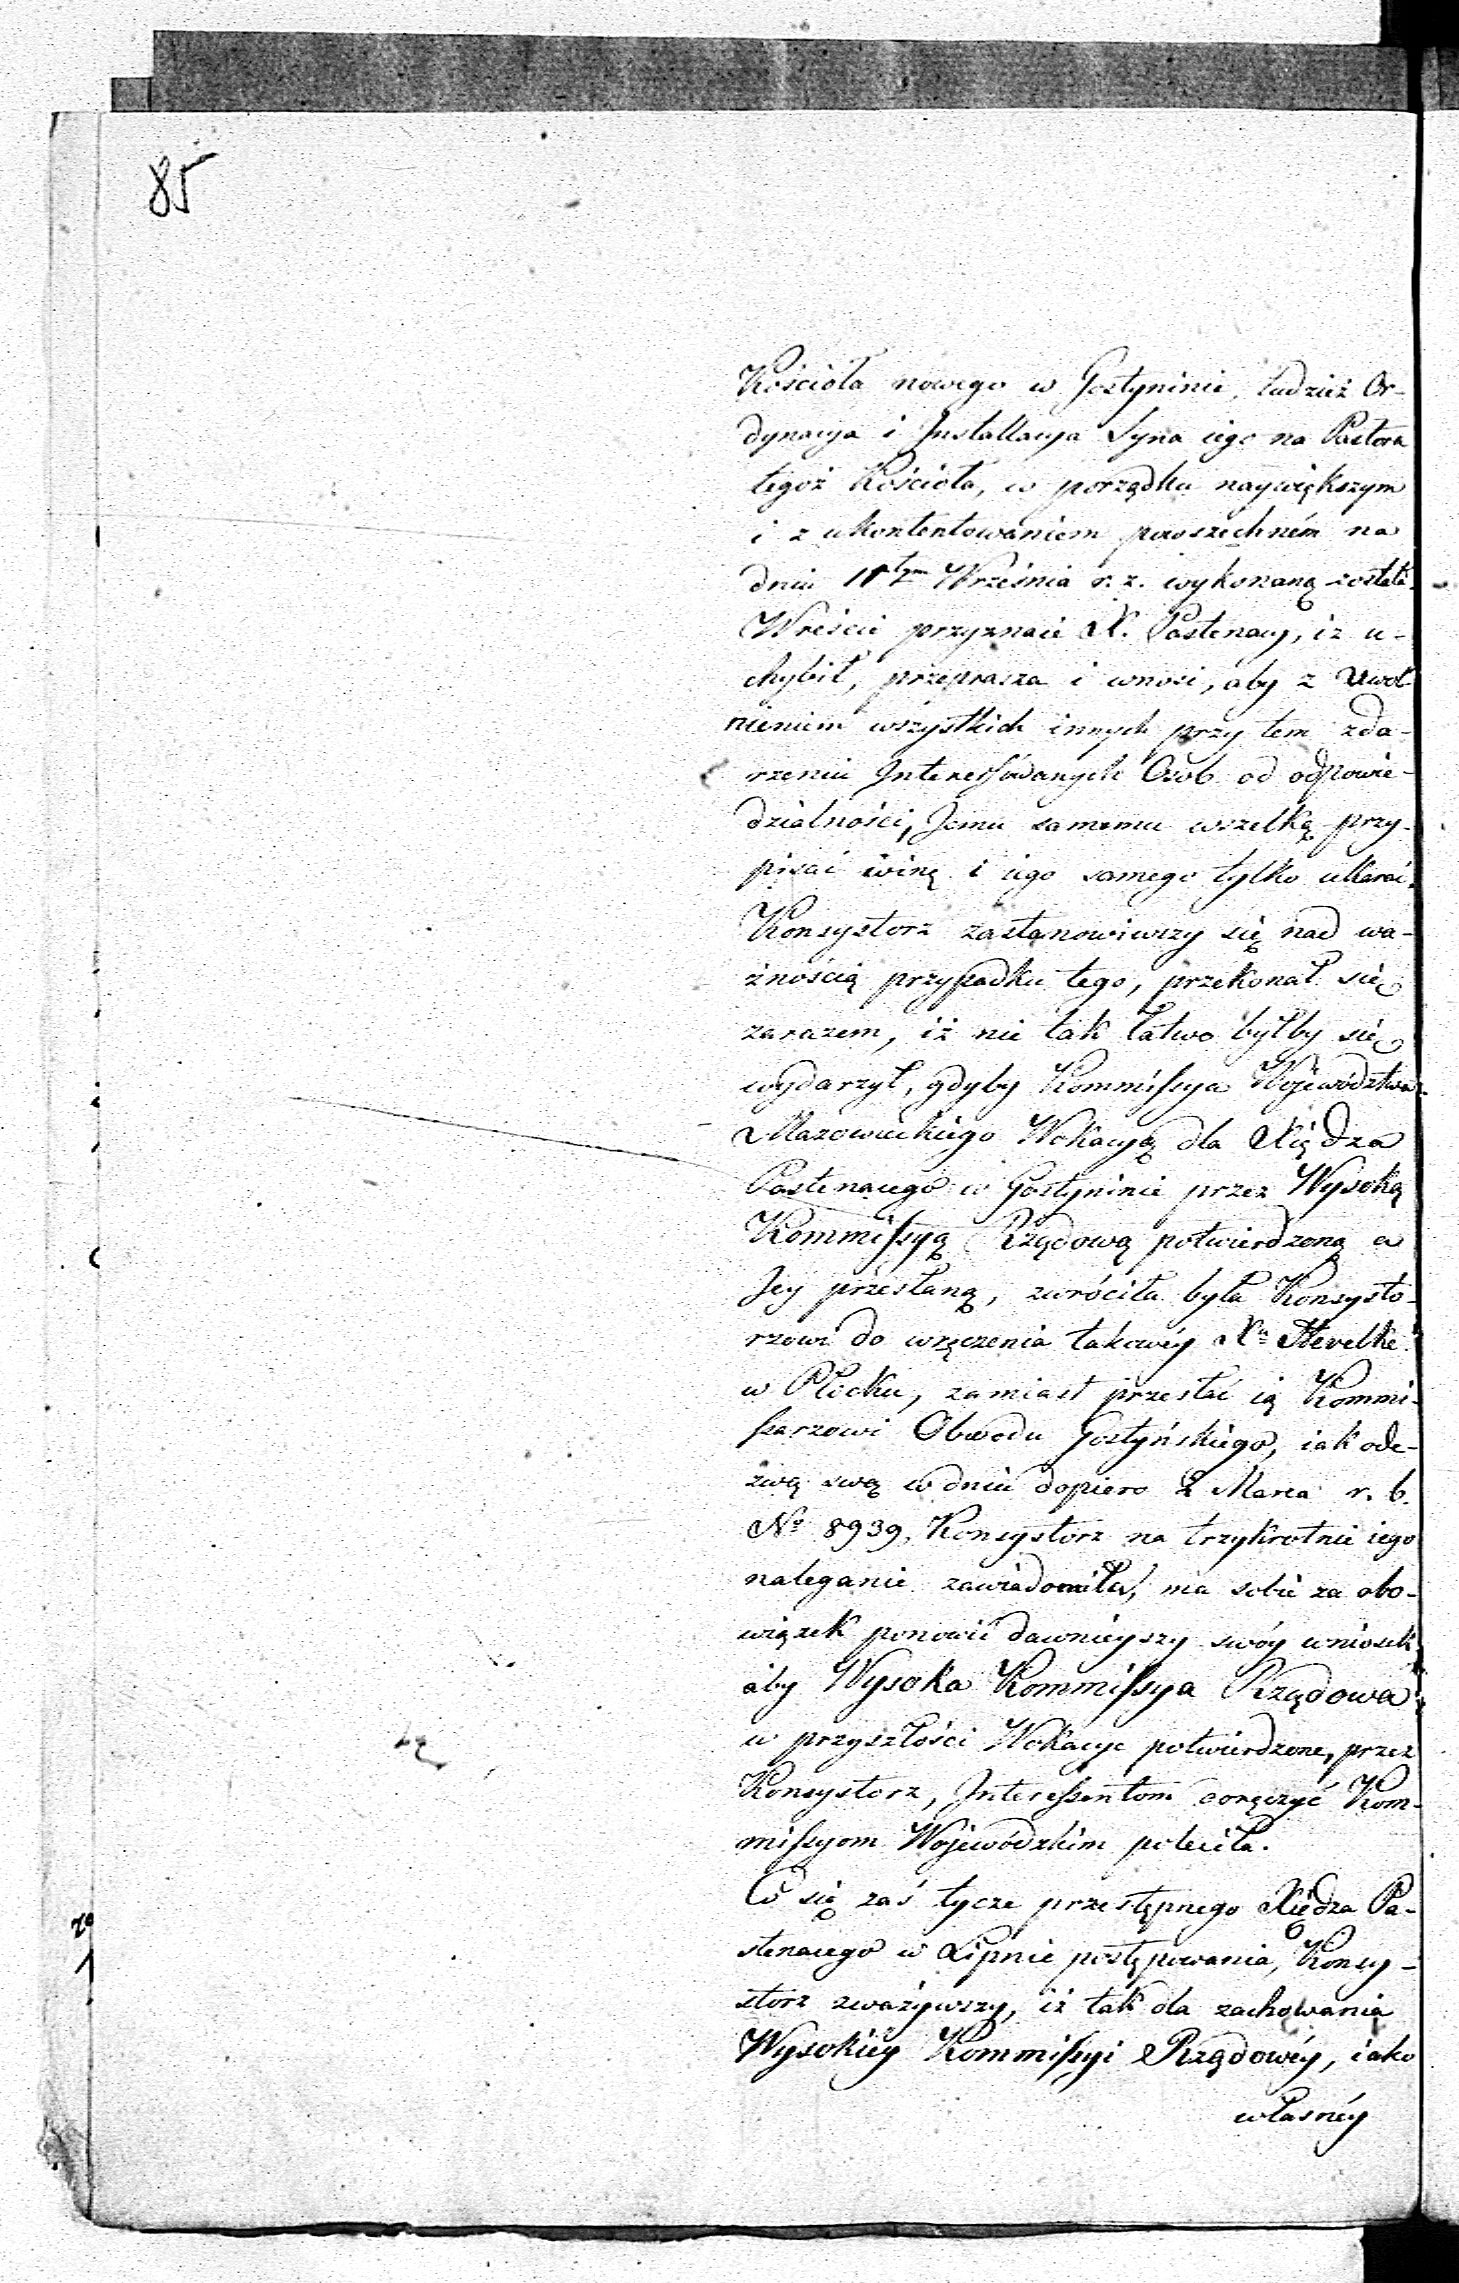 85
Kościoła nowego w Gostyninie, tudzież Or-
dynacya i Installacya Syna iego na Pastora
tegoż Kościoła, w porządku naywiększym
i z ukontentowaniem powszechném na
dniu 11tym Września r. z. wykonaną została.
Wreście przyznaie X. Pastenacy, iż u-
chybił, przeprasza i wnosi, aby z uwol
nieniem wszystkich innych przy tem zda-
rzeniu Interessowanych Osób od odpowie-
dzialności, Jemu samemu wszelką przy-
pisać winę i iego samego tylko ukarać.
Konsystorz zastanowiwszy się nad wa-
żnością przypadku tego, przekonał się
zarazem, iż nie tak łatwo byłby się
wydarzył, gdyby Kommissya Województwa
Mazowieckiego Wokacyą dla Xiędza
Pastenacego w Gostyninie przez Wysoką
Kommissyą Rządową potwierdzoną a
Jey przesłaną, zwróciła była Konsysto-
rzowi do wręczenia takowéy Xu Hevelke
w Płocku, zamiast przesłać ią Kommi-
ssarzowi Obwodu Gostyńskiego, iak ode-
zwą swą w dniu dopiero 2 Marca r. b.
No 8939, Konsystorz na trzykrotnie iego
naleganie zawiadomiła, ma sobie za obo-
wiązek ponowić dawnieyszy swóy wniosek
aby Wysoka Kommissya Rządowa
w przyszłości Wokacye potwierdzone, przez
Konsystorz, Interessentom doręczyć Kom-
missyom Wojewódzkim poleciła.
Co się zaś tycze przestępnego Xiędza Pa-
stenacego w Lipnie postępowania, Konsy-
storz zważywszy, iż tak dla zachowania
Wysokiey Kommissyi Rządowéy, iako
własnéy